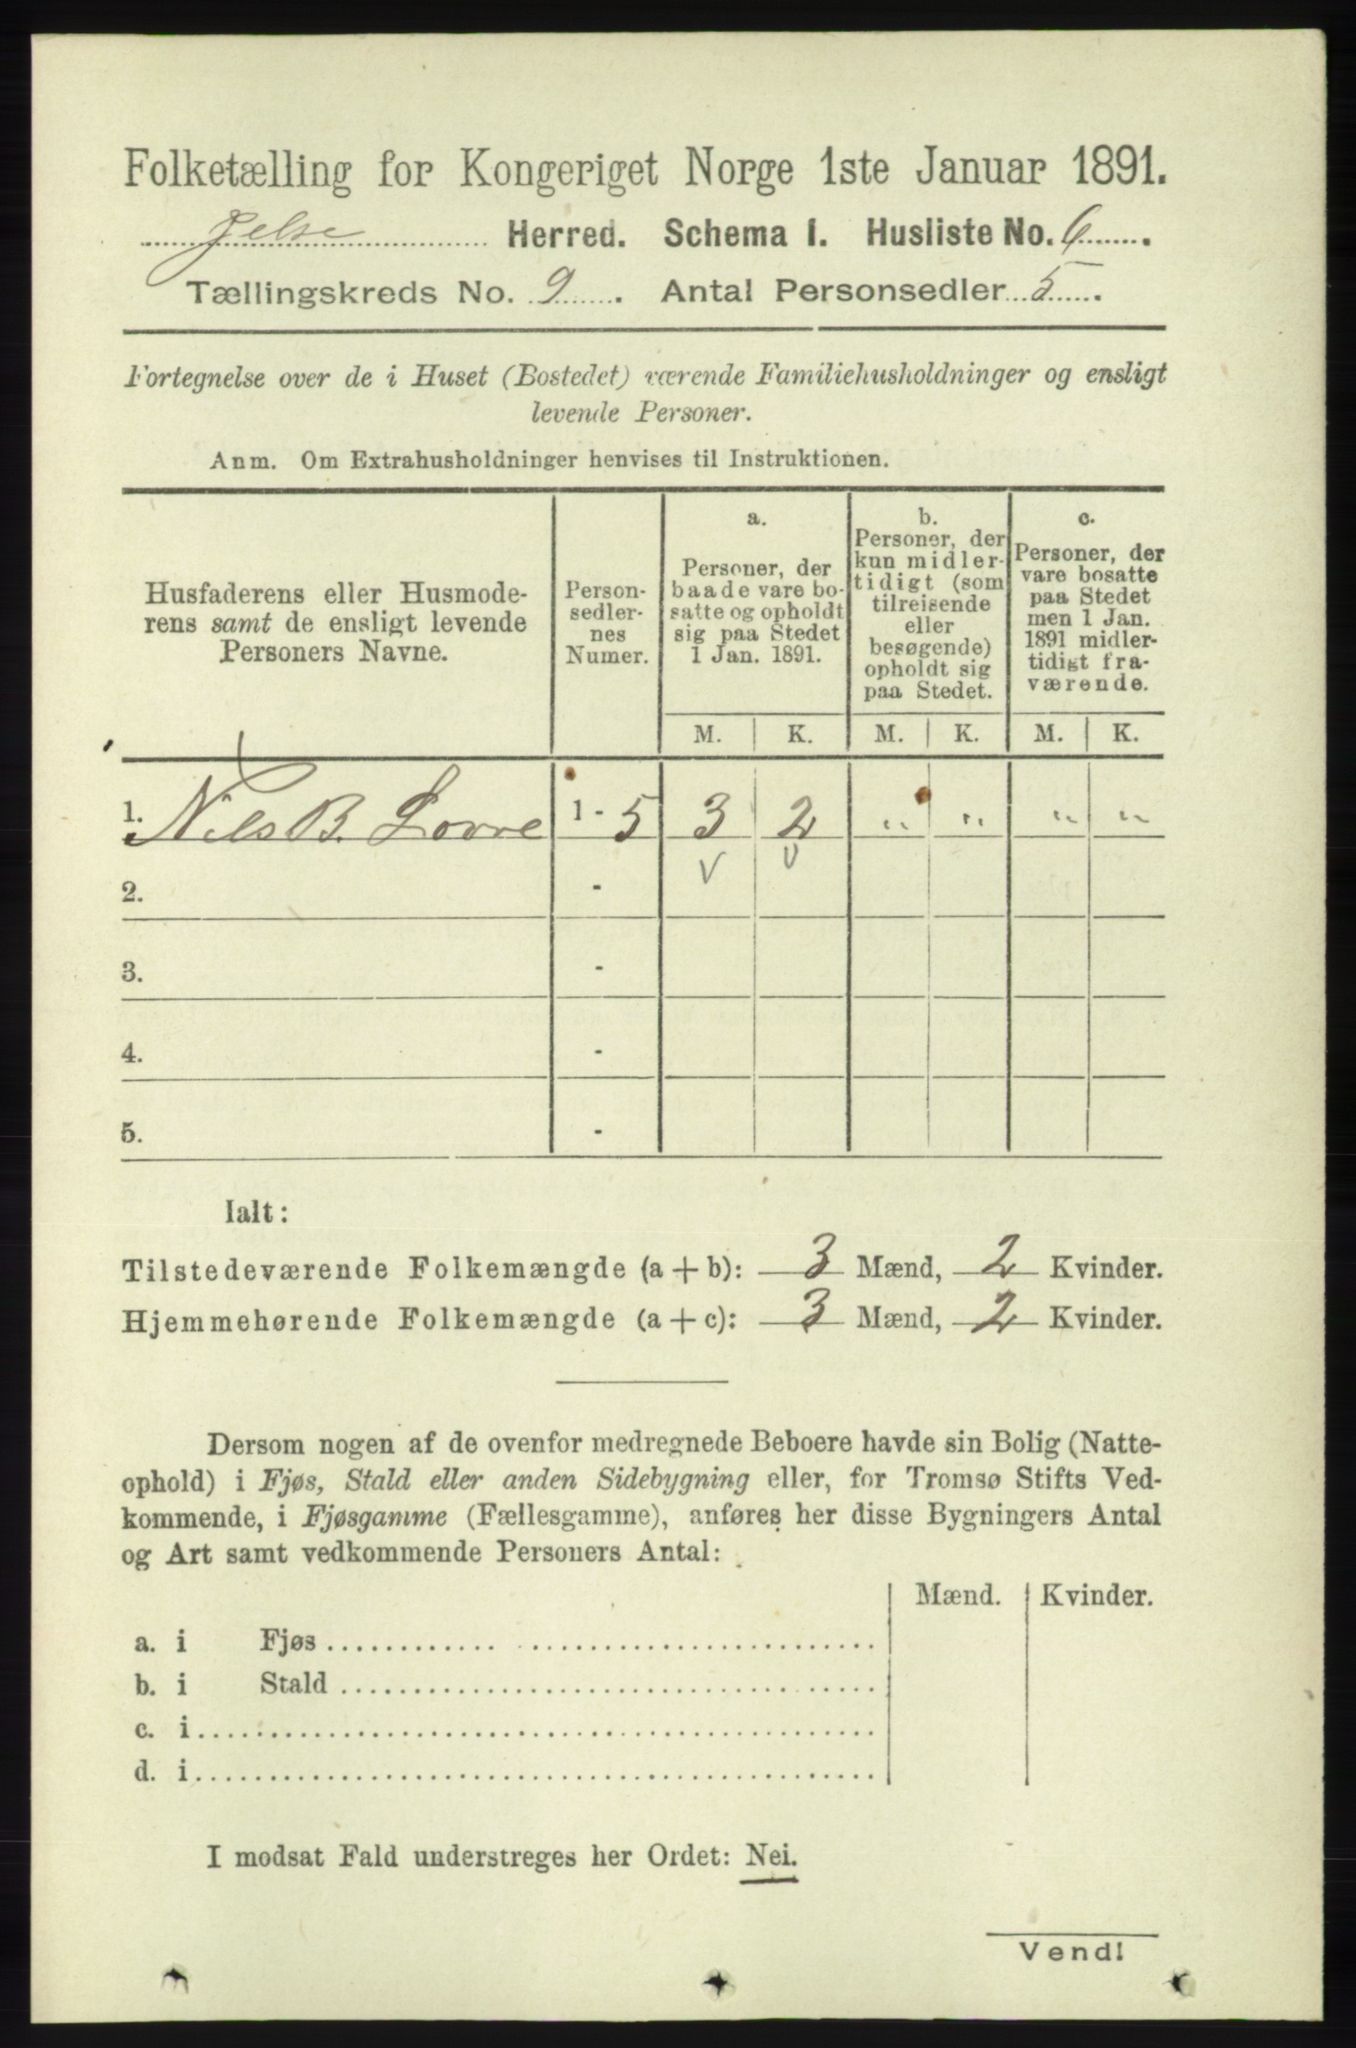 Folketælling for Kongeriget Norge 1ste Januar 1891.
Jelse Herred. Schema I. Husliste No. 6.
Tællingskreds No. 9. Antal Personsedler 5.
Fortegnelse over de i Huset (Bostedet) værende Familiehusholdninger og ensligt
levende Personer.
Anm. Om Extrahusholdninger henvises til Instruktionen.
Husfaderens eller Husmode-
rens samt de ensligt levende
Personers Navne.
Person-
sedler-
nes
Numer.
a.
Personer, der
baade vare bo-
satte og opholdt
sig paa Stedet
1 Jan. 1891.
b.
Personer, der
kun midler-
tidigt (som
tilreisende
eller
besøgende)
opholdt sig
paa Stedet.
c.
Personer, der
vare bosatte
paa Stedet
men 1 Jan.
1891 midler-
tidigt fra-
værende.
M. K. M. K. M. K.
1. Nils B. Lovre 1 - 5 3 2 " " " "
2. -
3. -
4. -
5. -
Ialt:
Tilstedeværende Folkemængde (a + b): 3 Mænd, 2 Kvinder.
Hjemmehørende Folkemængde (a + c): 3 Mænd, 2 Kvinder.
Dersom nogen af de ovenfor medregnede Beboere havde sin Bolig (Natte-
ophold) i Fjøs, Stald eller anden Sidebygning eller, for Tromsø Stifts Ved-
kommende, i Fjøsgamme (Fællesgamme), anføres her disse Bygningers Antal
og Art samt vedkommende Personers Antal:
Mænd. Kvinder.
a. i Fjøs
b. i Stald
c. i
d. i
I modsat Fald understreges her Ordet: Nei.
Vend!